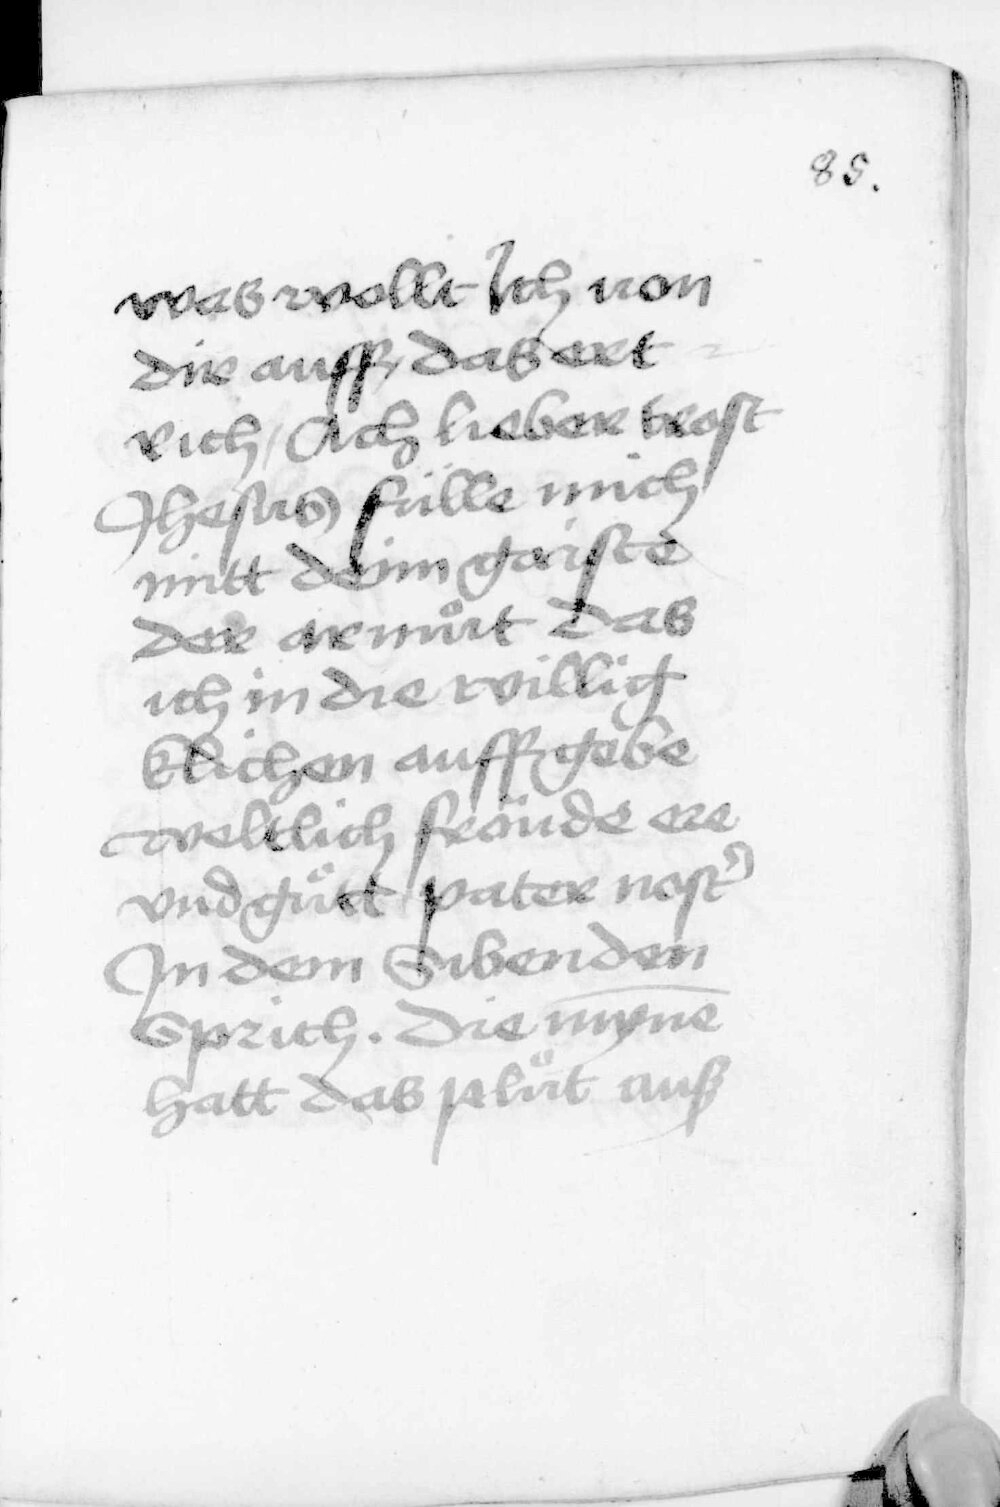 85.
was wollt Ich von
dir auff das ert
rich / Ach lieber trost
Jhesus fülle mich
mitt deim gaiste
der armůt das
ich in die willig
klichen auff gebe
weltlich fröude ere
vnd gůtt pater nost᾽
In dem Sibenden
Sprich. Die myne
hatt das plůt auß